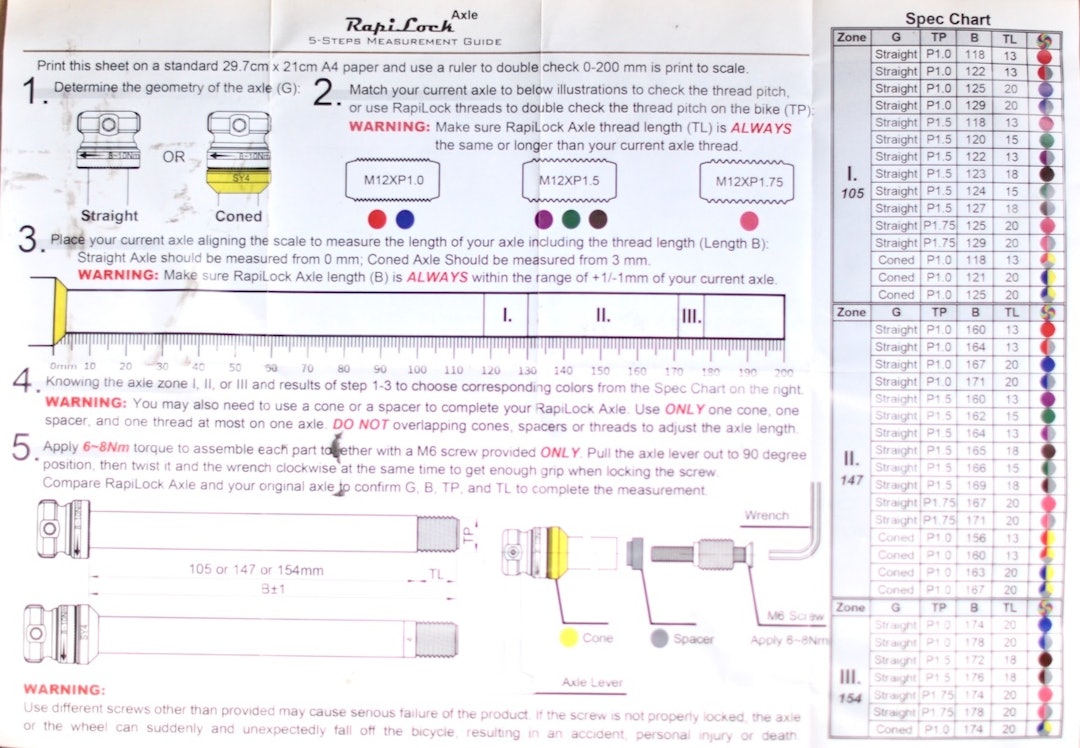 RapiLock Axle
5-STEPS MEASUREMENT GUIDE
Print this sheet on a standard 29.7cm x 21cm A4 paper and use a ruler to double check 0-200 mm is print to scale.
1. Determine the geometry of the axle (G):
8~10Nm
OR
8~10Nm
SY4
Straight
Coned
2. Match your current axle to below illustrations to check the thread pitch,
or use RapiLock threads to double check the thread pitch on the bike (TP):
WARNING: Make sure RapiLock Axle thread length (TL) is ALWAYS
the same or longer than your current axle thread.
M12XP1.0
M12XP1.5
M12XP1.75
3. Place your current axle aligning the scale to measure the length of your axle including the thread length (Length B):
Straight Axle should be measured from 0 mm; Coned Axle Should be measured from 3 mm.
WARNING: Make sure RapiLock Axle length (B) is ALWAYS within the range of +1/-1mm of your current axle.
I. II. III.
0mm 10 20 30 40 50 60 70 80 90 100 110 120 130 140 150 160 170 180 190 200
4. Knowing the axle zone I, II, or III and results of step 1-3 to choose corresponding colors from the Spec Chart on the right.
WARNING: You may also need to use a cone or a spacer to complete your RapiLock Axle. Use ONLY one cone, one
spacer, and one thread at most on one axle. DO NOT overlapping cones, spacers or threads to adjust the axle length.
5. Apply 6~8Nm torque to assemble each part together with a M6 screw provided ONLY. Pull the axle lever out to 90 degree
position, then twist it and the wrench clockwise at the same time to get enough grip when locking the screw.
Compare RapiLock Axle and your original axle to confirm G, B, TP, and TL to complete the measurement.
8~10Nm
TP
105 or 147 or 154mm
TL
B±1
8~10Nm
SY4
Wrench
M6 Screw
Cone
Spacer
Apply 6~8Nm
Axle Lever
WARNING:
Use different screws other than provided may cause serious failure of the product. If the screw is not properly locked, the axle
or the wheel can suddenly and unexpectedly fall off the bicycle, resulting in an accident, personal injury or death.
Spec Chart
Zone G TP B TL
I.
105
Straight P1.0 118 13
Straight P1.0 122 13
Straight P1.0 125 20
Straight P1.0 129 20
Straight P1.5 118 13
Straight P1.5 120 15
Straight P1.5 122 13
Straight P1.5 123 18
Straight P1.5 124 15
Straight P1.5 127 18
Straight P1.75 125 20
Straight P1.75 129 20
Coned P1.0 118 13
Coned P1.0 121 20
Coned P1.0 125 20
Zone G TP B TL
II.
147
Straight P1.0 160 13
Straight P1.0 164 13
Straight P1.0 167 20
Straight P1.0 171 20
Straight P1.5 160 13
Straight P1.5 162 15
Straight P1.5 164 13
Straight P1.5 165 18
Straight P1.5 166 15
Straight P1.5 169 18
Straight P1.75 167 20
Straight P1.75 171 20
Coned P1.0 156 13
Coned P1.0 160 13
Coned P1.0 163 20
Coned P1.0 167 20
Zone G TP B TL
III.
154
Straight P1.0 174 20
Straight P1.0 178 20
Straight P1.5 172 18
Straight P1.5 176 18
Straight P1.75 174 20
Straight P1.75 178 20
Coned P1.0 174 20